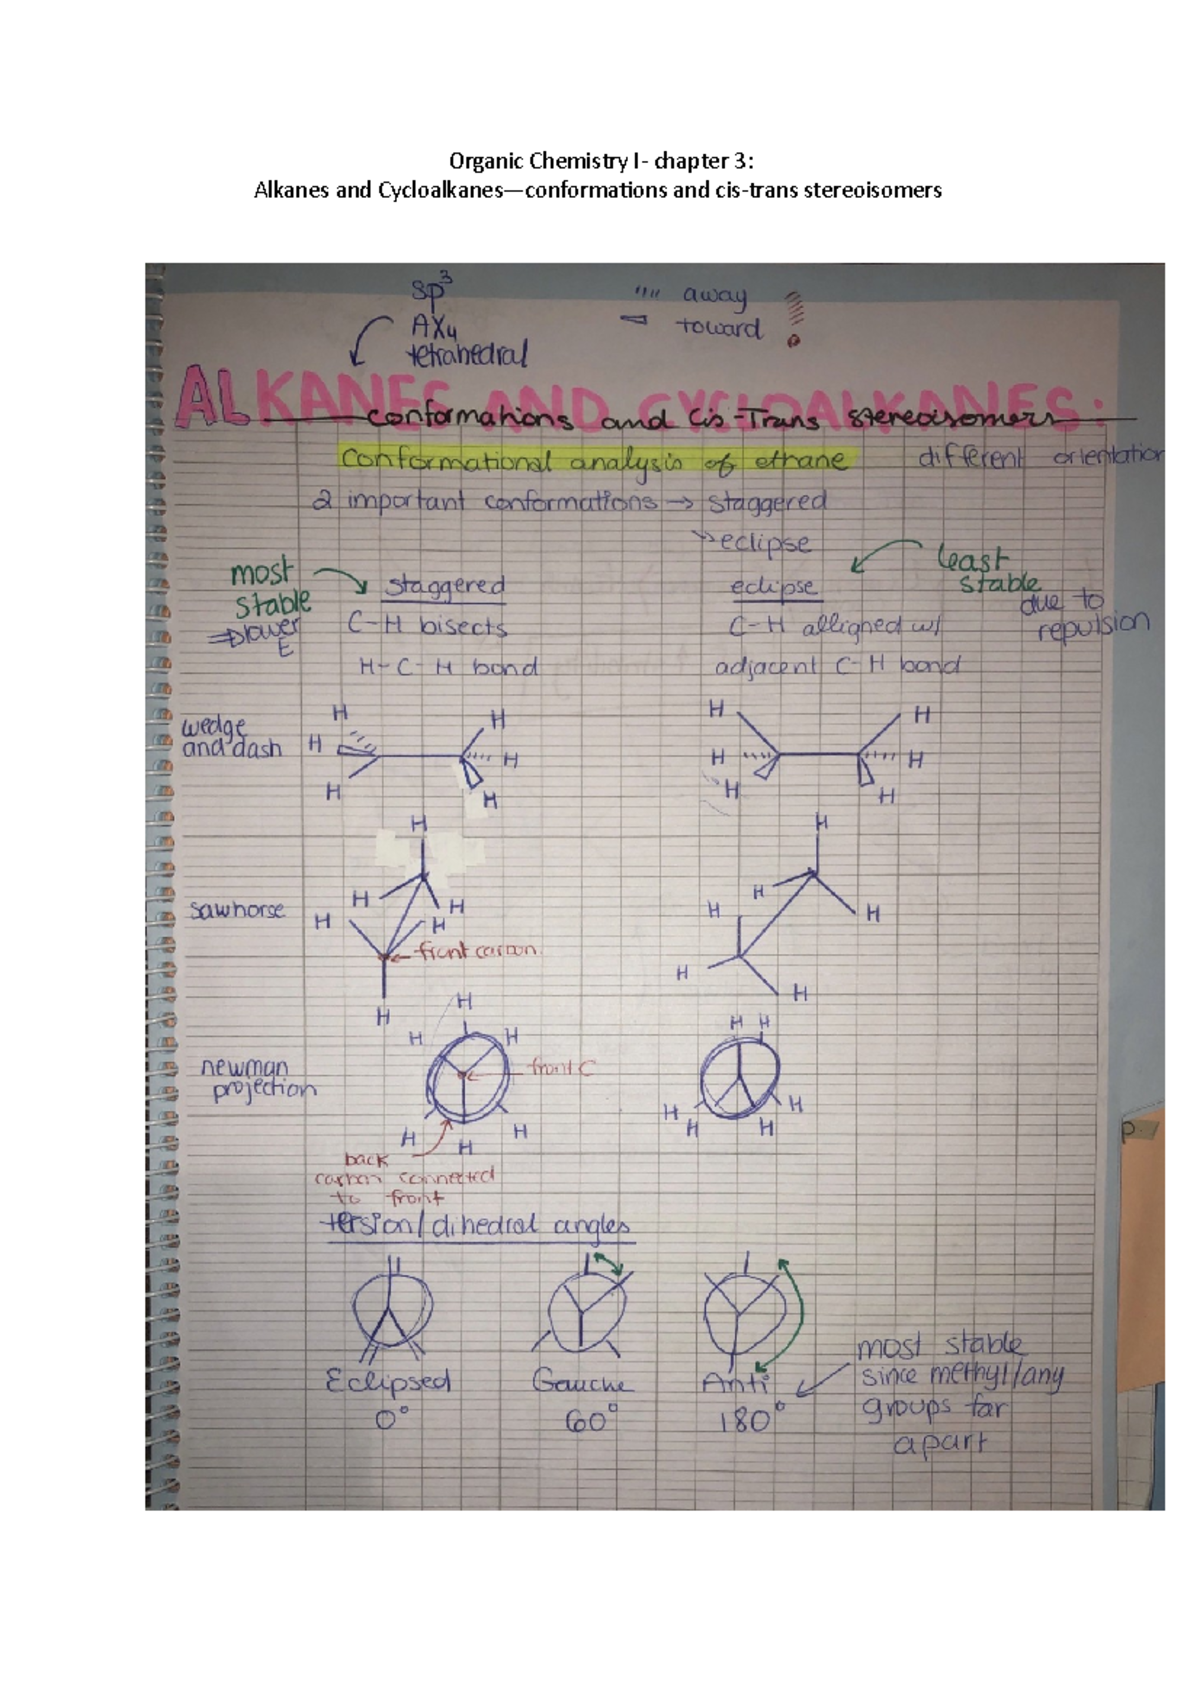 Organic Chemistry I- chapter 3:
Alkanes and Cycloalkanes—conformations and cis-trans stereoisomers
sp3
AX4
tetrahedral
"" away
toward
ALKANES AND CYCLOALKANES:
Conformations and Cis-Trans stereoisomers
Conformational analysis of ethane different orientation
2 important conformations → staggered
→ eclipse
most stable
⇒ lower E
staggered
C-H bisects
H-C-H bond
eclipse
C-H alligned w/
adjacent C-H bond
least stable
due to repulsion
wedge
and dash
H H
H H
H H
H H
H H
H H
sawhorse
H
H H
H H
front carbon
H
H
H
H H
H
H
newman
projection
H
H H
front C
H H H
back
carbon connected
to front
H H
H H
H H
torsion/dihedral angles
Eclipsed Gauche Anti
0° 60° 180°
most stable
since methyl/any
groups far
apart
p.